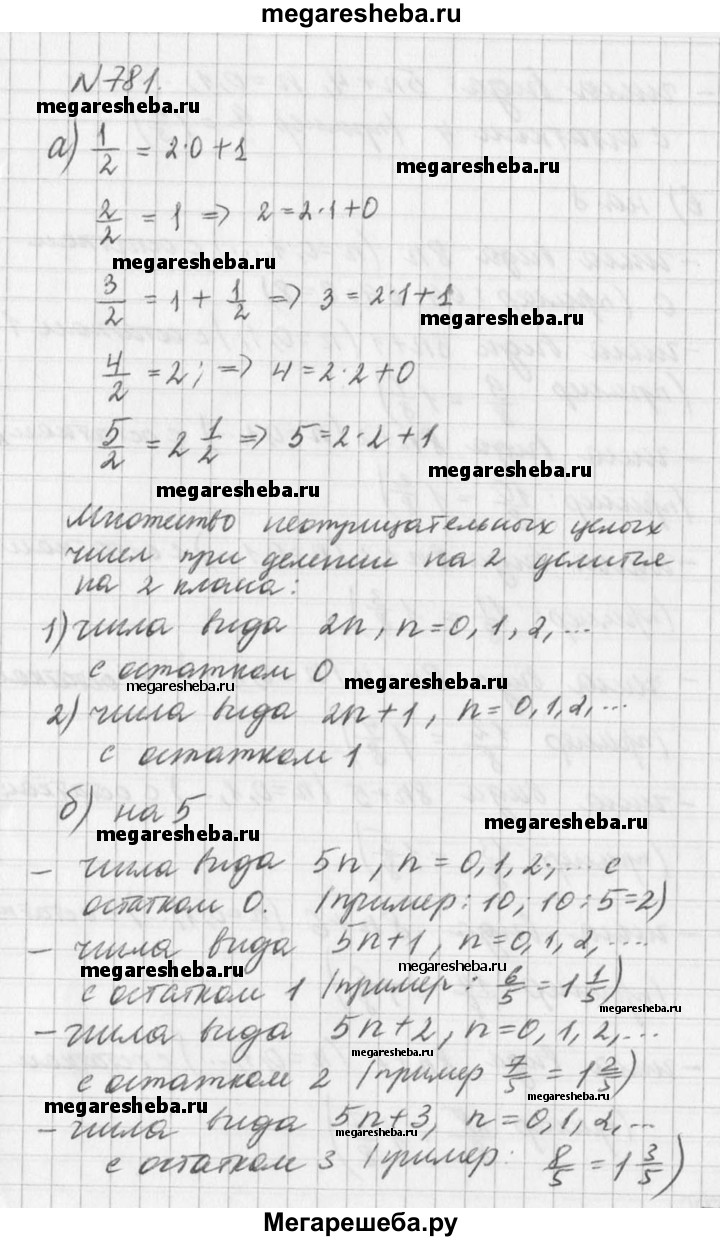 megaresheba.ru
N781.
megaresheba.ru
а) 1/2 = 2·0+1
megaresheba.ru
2/2 = 1 => 2=2·1+0
megaresheba.ru
3/2 = 1 + 1/2 => 3=2·1+1
megaresheba.ru
4/2 = 2; => 4=2·2+0
5/2 = 2 1/2 => 5=2·2+1
megaresheba.ru
megaresheba.ru
Множество неотрицательных целых
чисел при делении на 2 делится
на 2 класса:
1) числа вида 2n, n=0,1,2,...
с остатком 0
megaresheba.ru megaresheba.ru
2) числа вида 2n+1, n=0,1,2,...
с остатком 1
б) на 5
megaresheba.ru megaresheba.ru
- числа вида 5n, n=0,1,2,... с
остатком 0. (пример: 10; 10:5=2)
- числа вида 5n+1, n=0,1,2,....
megaresheba.ru megaresheba.ru
с остатком 1 (пример: 6/5 = 1 1/5)
megaresheba.ru
- числа вида 5n+2, n=0,1,2,...
megaresheba.ru
с остатком 2 (пример 7/5 = 1 2/5)
megaresheba.ru megaresheba.ru
- числа вида 5n+3, n=0,1,2,...
megaresheba.ru
с остатком 3 (пример: 8/5 = 1 3/5)
Мегарешеба.ру